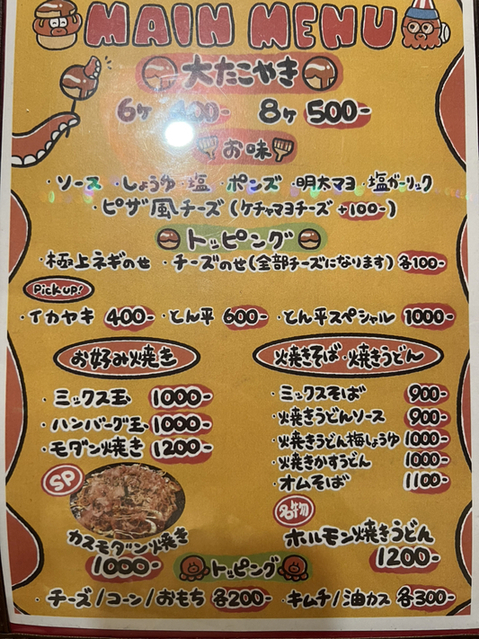 MAIN MENU
大たこやき
6ヶ 400- 8ヶ 500-
お味
・ソース ・しょうゆ ・塩 ・ポンズ ・明太マヨ ・塩ガーリック
・ピザ風チーズ(ケチャマヨチーズ +100-)
トッピング
・極上ネギのせ ・チーズのせ(全部チーズになります) 各100-
Pick UP!
・イカヤキ 400- ・とん平 600- ・とん平スペシャル 1000-
お好み焼き
・ミックス玉 1000-
・ハンバーグ玉 1000-
・モダン焼き 1200-
SP
カスモダン焼き
1000-
焼きそば・焼きうどん
・ミックスそば 900-
・焼きうどんソース 900-
・焼きうどん梅しょうゆ 1000-
・焼きかすうどん 1000-
・オムそば 1100-
名物
ホルモン焼きうどん
1200-
トッピング
・チーズ/コーン/おもち 各200- ・キムチ/油カス 各300-